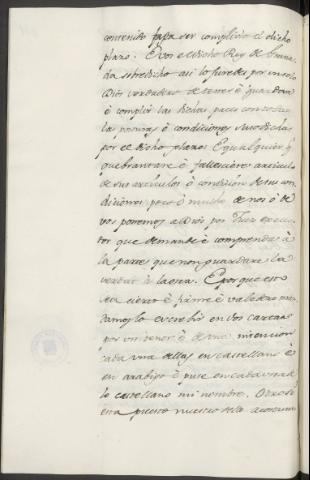 contenido fasa ser complido el dicho
plazo. E vos el dicho Rey de Grana-
da sobredicho asi lo juredes por un solo
Dios verdadero de tener è guardar
è complir las dichas paces con todas
las posturas è condiciones susodichas
por el dicho plazo. E qualquier q̃
quebrantare è fallesciere articulo
de sus articulos ò condición de sus con-
diciones poco ò mucho de nos ò de
vos ponemos a Dios por Juez execu-
tor que demande è comprenda à
la parte que non guardare la
verdad à la otra. E por que esto
sea cierto è firme è valedero man-
damoslo escrebir en dos cartas
por un tenor è de una intencion
cada una dellas en castellano è
en arabigo è puse en cada una de
lo castellano mi nombre. Otrosi
esta puesto nuestro sello acostum-